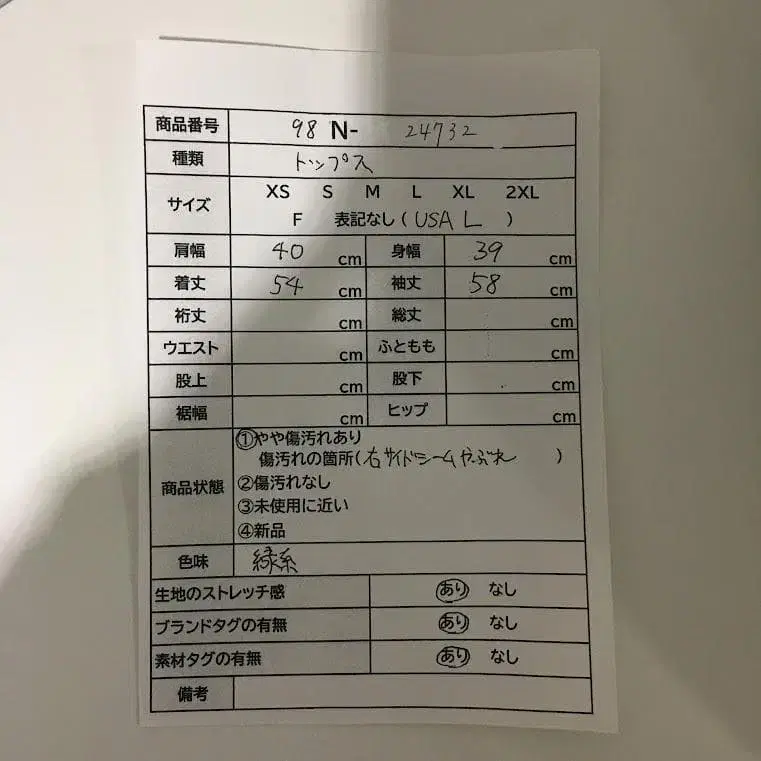 商品番号 98 N- 24732
種類 トップス
サイズ XS S M L XL 2XL
F 表記なし ( USA L )
肩幅 40 cm 身幅 39 cm
着丈 54 cm 袖丈 58 cm
裄丈 cm 総丈 cm
ウエスト cm ふともも cm
股上 cm 股下 cm
裾幅 cm ヒップ cm
商品状態 ①やや傷汚れあり
傷汚れの箇所(右サイドシームやぶれ )
②傷汚れなし
③未使用に近い
④新品
色味 緑系
生地のストレッチ感 あり なし
ブランドタグの有無 あり なし
素材タグの有無 あり なし
備考